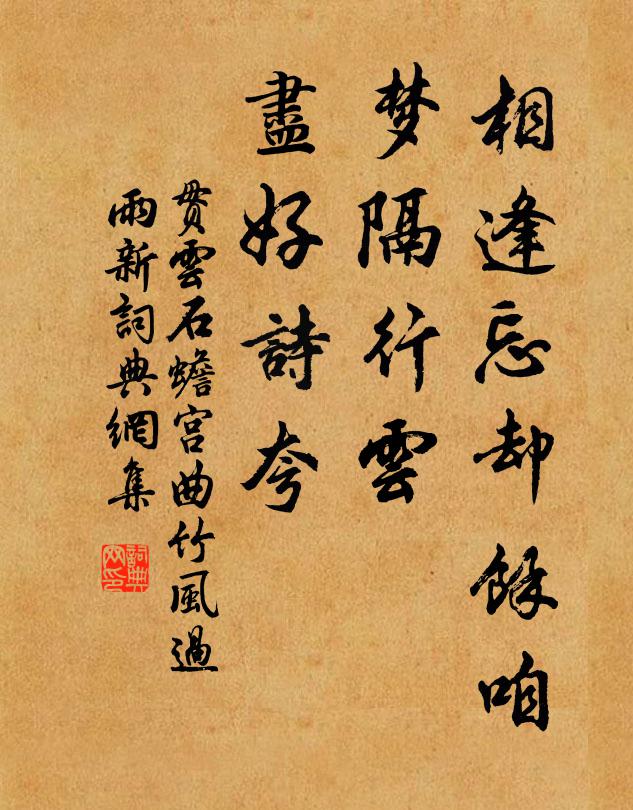 相逢忘却餘咱
梦隔行雲
盡好詩夸
貫雲石蟾宫曲竹風過
雨新詞典網集
詞典網印